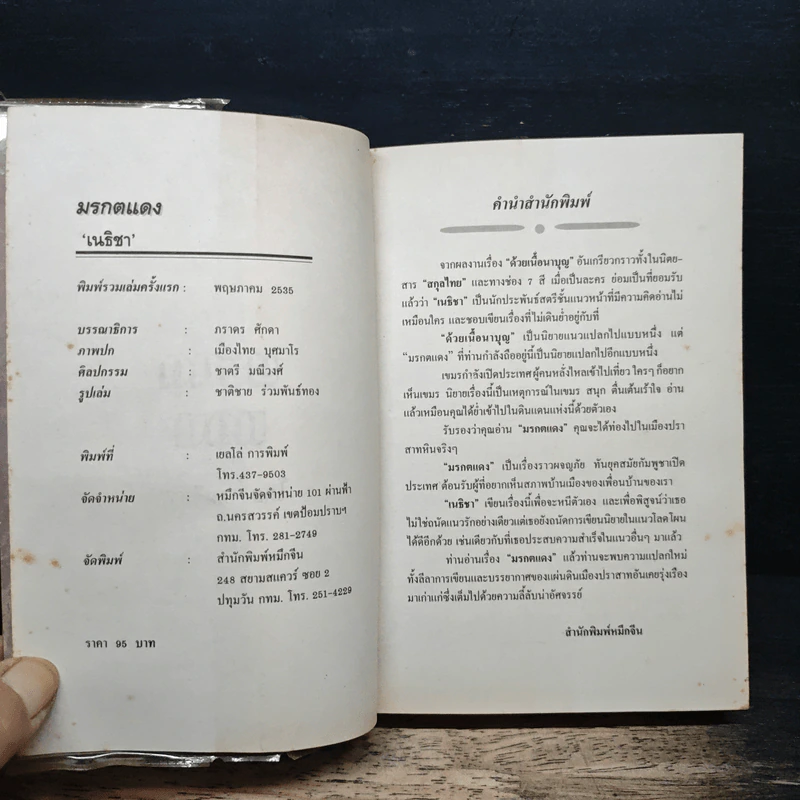 มรกตแดง
'เนธิชา'
พิมพ์รวมเล่มครั้งแรก : พฤษภาคม 2535
บรรณาธิการ : ภราดร ศักดา
ภาพปก : เมืองไทย บุศมาโร
ศิลปกรรม : ชาตรี มณีวงศ์
รูปเล่ม : ชาติชาย ร่วมพันธ์ทอง
พิมพ์ที่ : เยลโล่ การพิมพ์
โทร.437-9503
จัดจำหน่าย : หมึกจีนจัดจำหน่าย 101 ผ่านฟ้า
ถ.นครสวรรค์ เขตป้อมปราบฯ
กทม. โทร. 281-2749
จัดพิมพ์ : สำนักพิมพ์หมึกจีน
248 สยามสแควร์ ซอย 2
ปทุมวัน กทม. โทร. 251-4229
ราคา 95 บาท
คำนำสำนักพิมพ์
จากผลงานเรื่อง "ด้วยเนื้อนาบุญ" อันเกรียวกราวทั้งในนิตย-
สาร "สกุลไทย" และทางช่อง 7 สี เมื่อเป็นละคร ย่อมเป็นที่ยอมรับ
แล้วว่า "เนธิชา" เป็นนักประพันธ์สตรีชั้นแนวหน้าที่มีความคิดอ่านไม่
เหมือนใคร และชอบเขียนเรื่องที่ไม่เดินย่ำอยู่กับที่
"ด้วยเนื้อนาบุญ" เป็นนิยายแนวแปลกไปแบบหนึ่ง แต่
"มรกตแดง" ที่ท่านกำลังถืออยู่นี้เป็นนิยายแปลกไปอีกแบบหนึ่ง
เขมรกำลังเปิดประเทศ ผู้คนหลั่งไหลเข้าไปเที่ยว ใครๆ ก็อยาก
เห็นเขมร นิยายเรื่องนี้เป็นเหตุการณ์ในเขมร สนุก ตื่นเต้นเร้าใจ อ่าน
แล้วเหมือนคุณได้ย่ำเข้าไปในดินแดนแห่งนี้ด้วยตัวเอง
รับรองว่าคุณอ่าน "มรกตแดง" คุณจะได้ท่องไปในเมืองปรา
สาทหินจริงๆ
"มรกตแดง" เป็นเรื่องราวผจญภัย ทันยุคสมัยกัมพูชาเปิด
ประเทศ ต้อนรับผู้ที่อยากเห็นสภาพบ้านเมืองของเพื่อนบ้านของเรา
"เนธิชา" เขียนเรื่องนี้เพื่อจะหนีตัวเอง และเพื่อพิสูจน์ว่าเธอ
ไม่ใช่ถนัดแนวรักอย่างเดียวแต่เธอยังถนัดการเขียนนิยายในแนวโลดโผน
ได้ดีอีกด้วย เช่นเดียวกับที่เธอประสบความสำเร็จในแนวอื่นๆ มาแล้ว
ท่านอ่านเรื่อง "มรกตแดง" แล้วท่านจะพบความแปลกใหม่
ทั้งลีลาการเขียนและบรรยากาศของแผ่นดินเมืองปราสาทอันเคยรุ่งเรือง
มาเก่าแก่ซึ่งเต็มไปด้วยความลี้ลับน่าอัศจรรย์
สำนักพิมพ์หมึกจีน